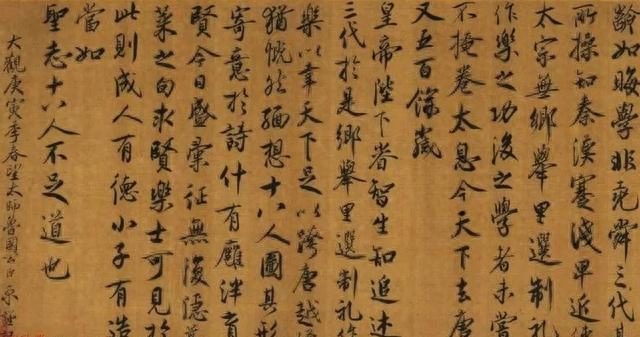 齡如晦學非堯舜三代
所操知秦漢蹇淺卑近
太宗無鄉舉里選制禮
作樂之功後之學者未嘗
不掩卷太息今天下去唐
又五百餘歲
皇帝陛下睿智生知追述
三代於是鄉舉里選制礼作
樂以幸天下足以跨唐越
猶慨然緬想十八人圖其形
寄意於詩什有廱泮育
賢今日盛彙征無復隱
菜之句求賢樂士可見於
此則成人有德小子有造
當如
聖志十八人不足道也
大觀庚寅季春望太師魯國公臣京謹記